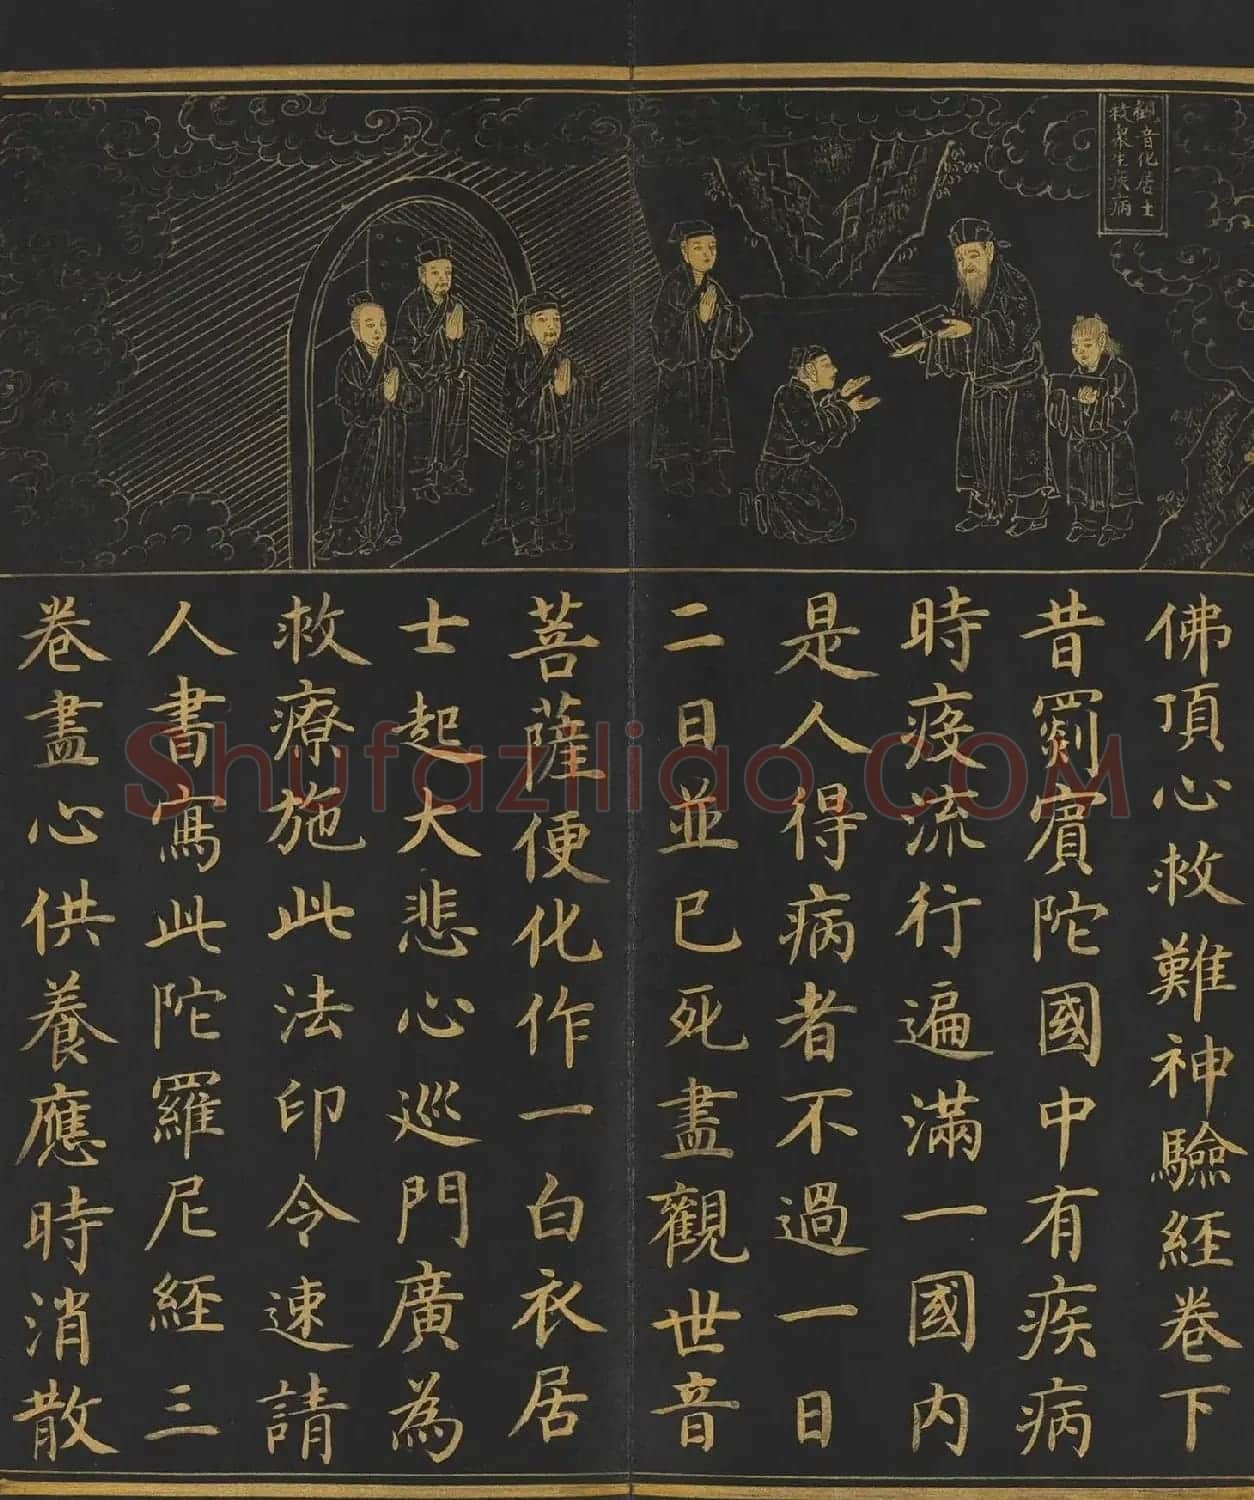 觀音化居士
救衆生疾病
佛頂心救難神驗經卷下
昔罽賓陀國中有疾病
時疫流行遍滿一國内
是人得病者不過一日
二日並已死盡觀世音
菩薩便化作一白衣居
士起大悲心巡門廣為
救療施此法印令速請
人書寫此陀羅尼經三
卷盡心供養應時消散
Shufaziliao.COM